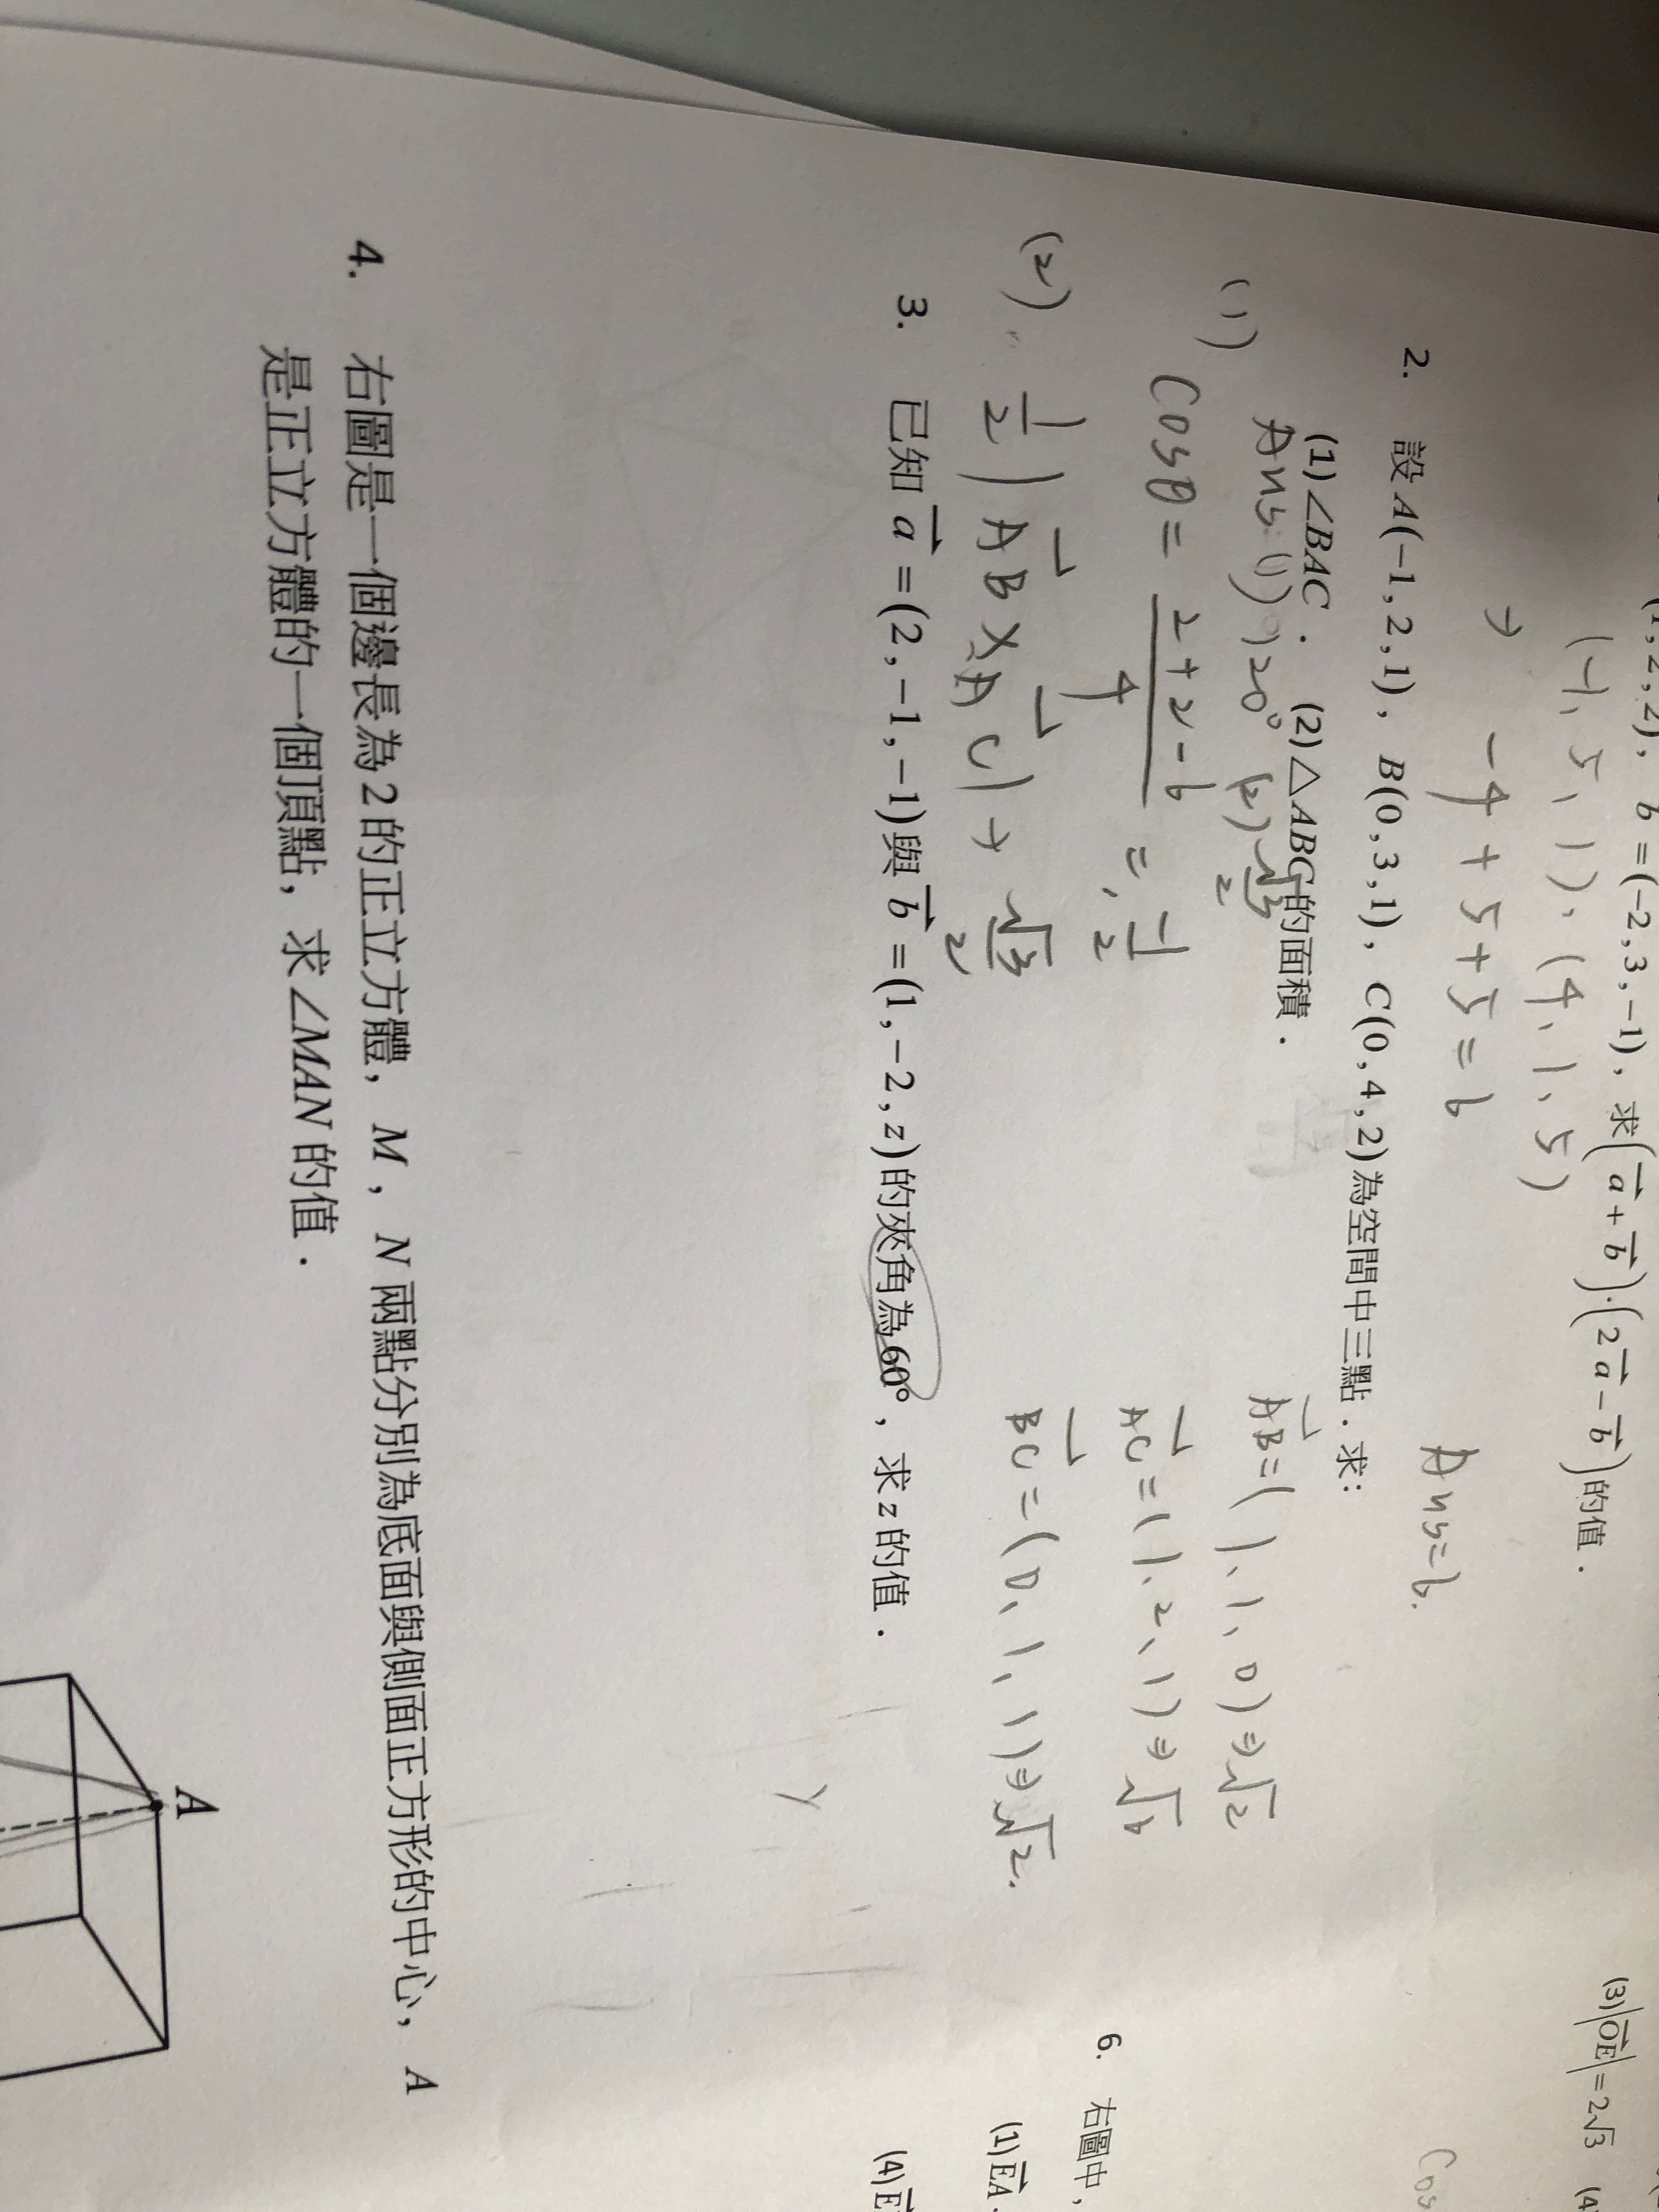 (1,2,2)，b⃗=(-2,3,-1)，求(a⃗+b⃗)·(2a⃗-b⃗)的值．
(-1, 5, 1)、(4, 1, 5)
→ -4+5+5=6
Ans=6.
2. 設A(-1,2,1)，B(0,3,1)，C(0,4,2)為空間中三點．求：
(1)∠BAC． (2)△ABC的面積．
Ans:(1) 120° (2) √3/2
(1) cosθ = (2+2-6)/4 = -1/2
(2) 1/2 |AB⃗ × AC⃗| → √3/2
AB⃗=(1、1、0)⇒√2
AC⃗=(1、2、1)⇒√6
BC⃗=(0、1、1)⇒√2.
3. 已知a⃗=(2,-1,-1)與b⃗=(1,-2,z)的夾角為60°，求z的值．
4. 右圖是一個邊長為2的正立方體，M，N兩點分別為底面與側面正方形的中心，A
是正立方體的一個頂點，求∠MAN的值．
A
(3)|OE⃗|=2√3 (4
Cos
6. 右圖中，
(1)EA⃗·
(4)E